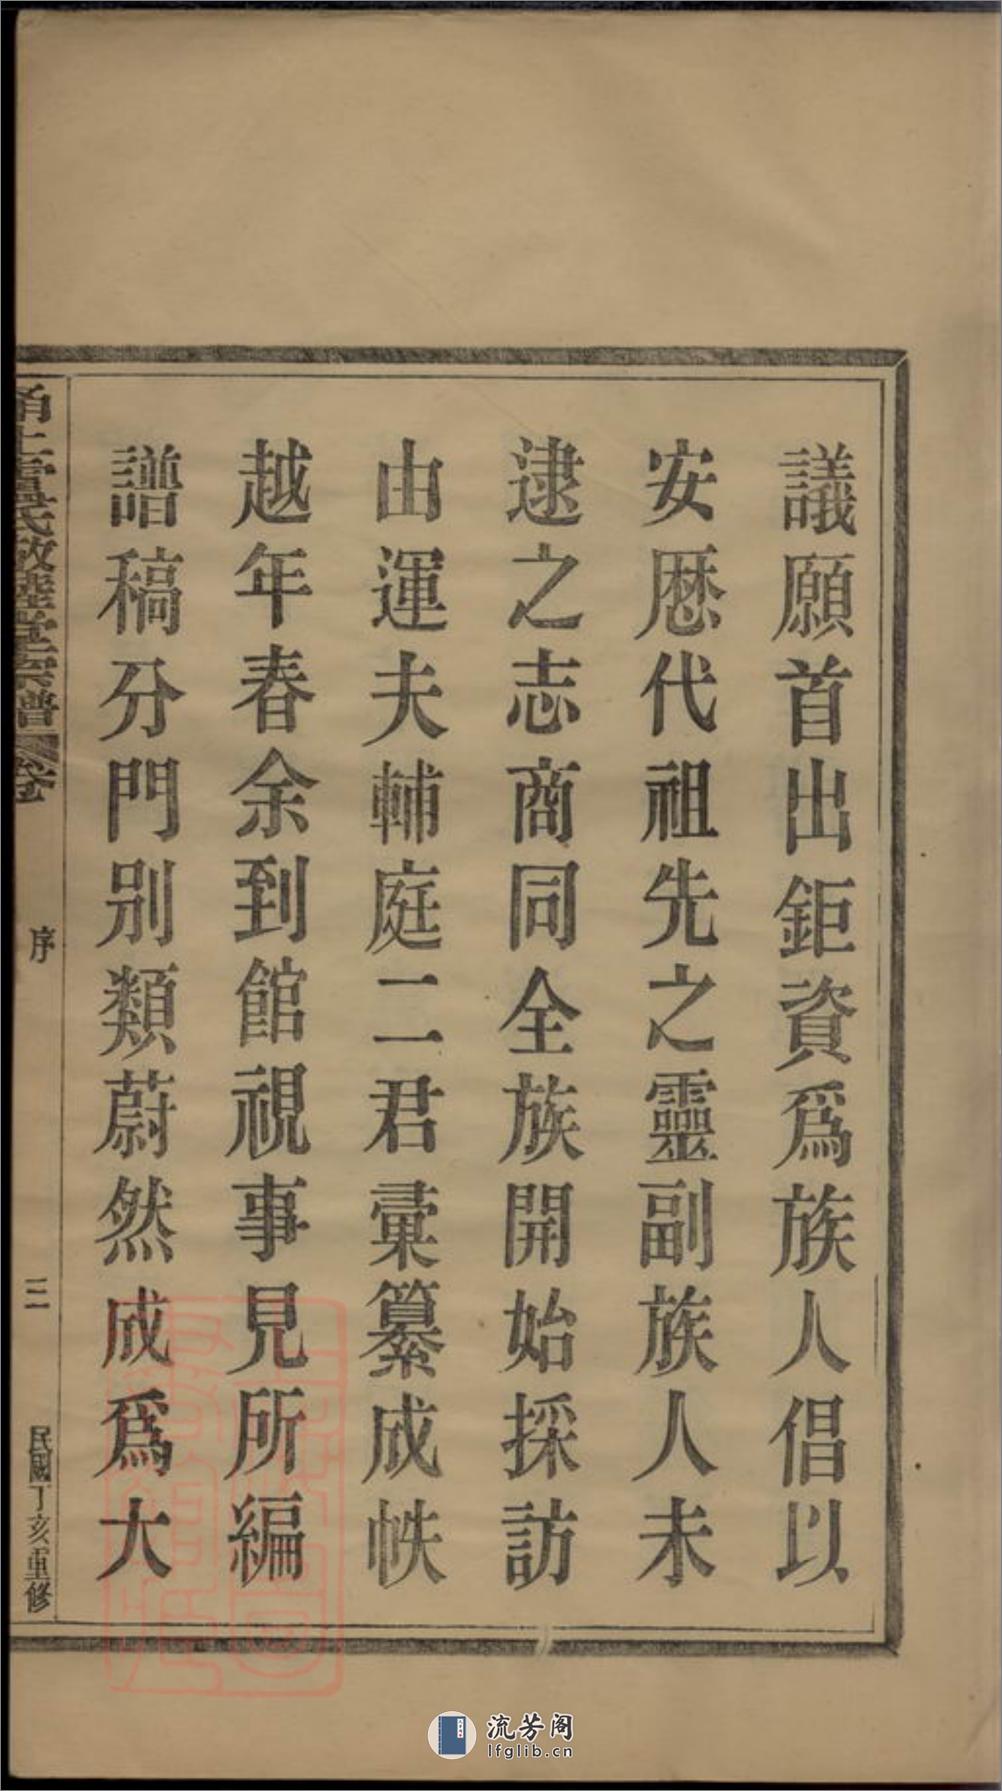 議願首出鉅資爲族人倡以
安厯代祖先之靈副族人未
逮之志商同全族開始採訪
由運夫輔庭二君彚纂成帙
越年春余到館視事見所編
譜稿分門別類蔚然成爲大
甬上雷氏敬睦堂宗譜 卷
序
三
民國丁亥重修
流芳阁
lfglib.cn